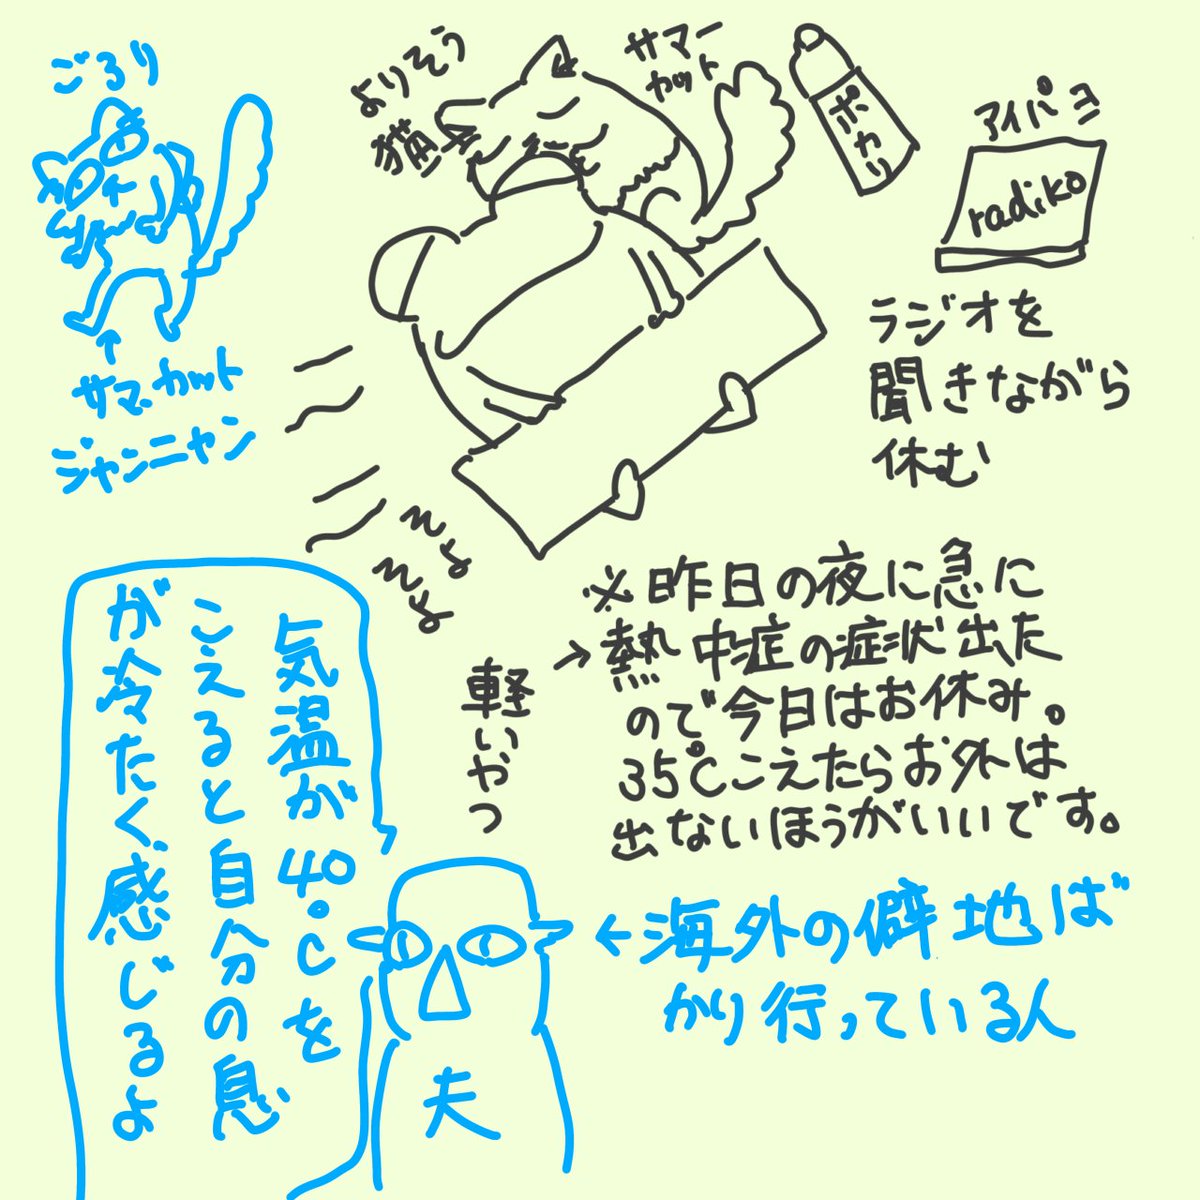 ごろり
サマーカット
ジャンニャン
よりそう
猫
サマー
カット
ポカリ
アイパヨ
radiko
ラジオを
聞きながら
休む
※昨日の夜に急に
熱中症の症状出た
ので今日はお休み。
35℃こえたらお外は
出ないほうがいいです。
軽いやつ
→
気温が40℃を
こえると自分の息
が冷たく感じるよ
夫
←海外の僻地ば
かり行っている人